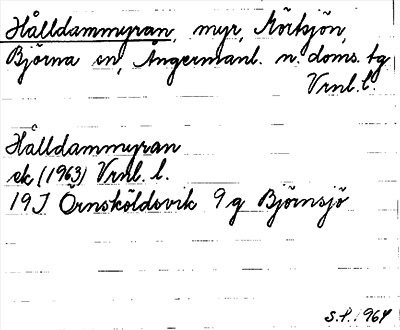 Hålldammyran, myr, Mörtsjön,
Björna sn, Ångermanl. n. doms. tg
Vrnl. l.
Hålldammyran
ek (1963) Vrnl. l.
19J Örnsköldsvik 9g Björnsjö
S.P. 1964